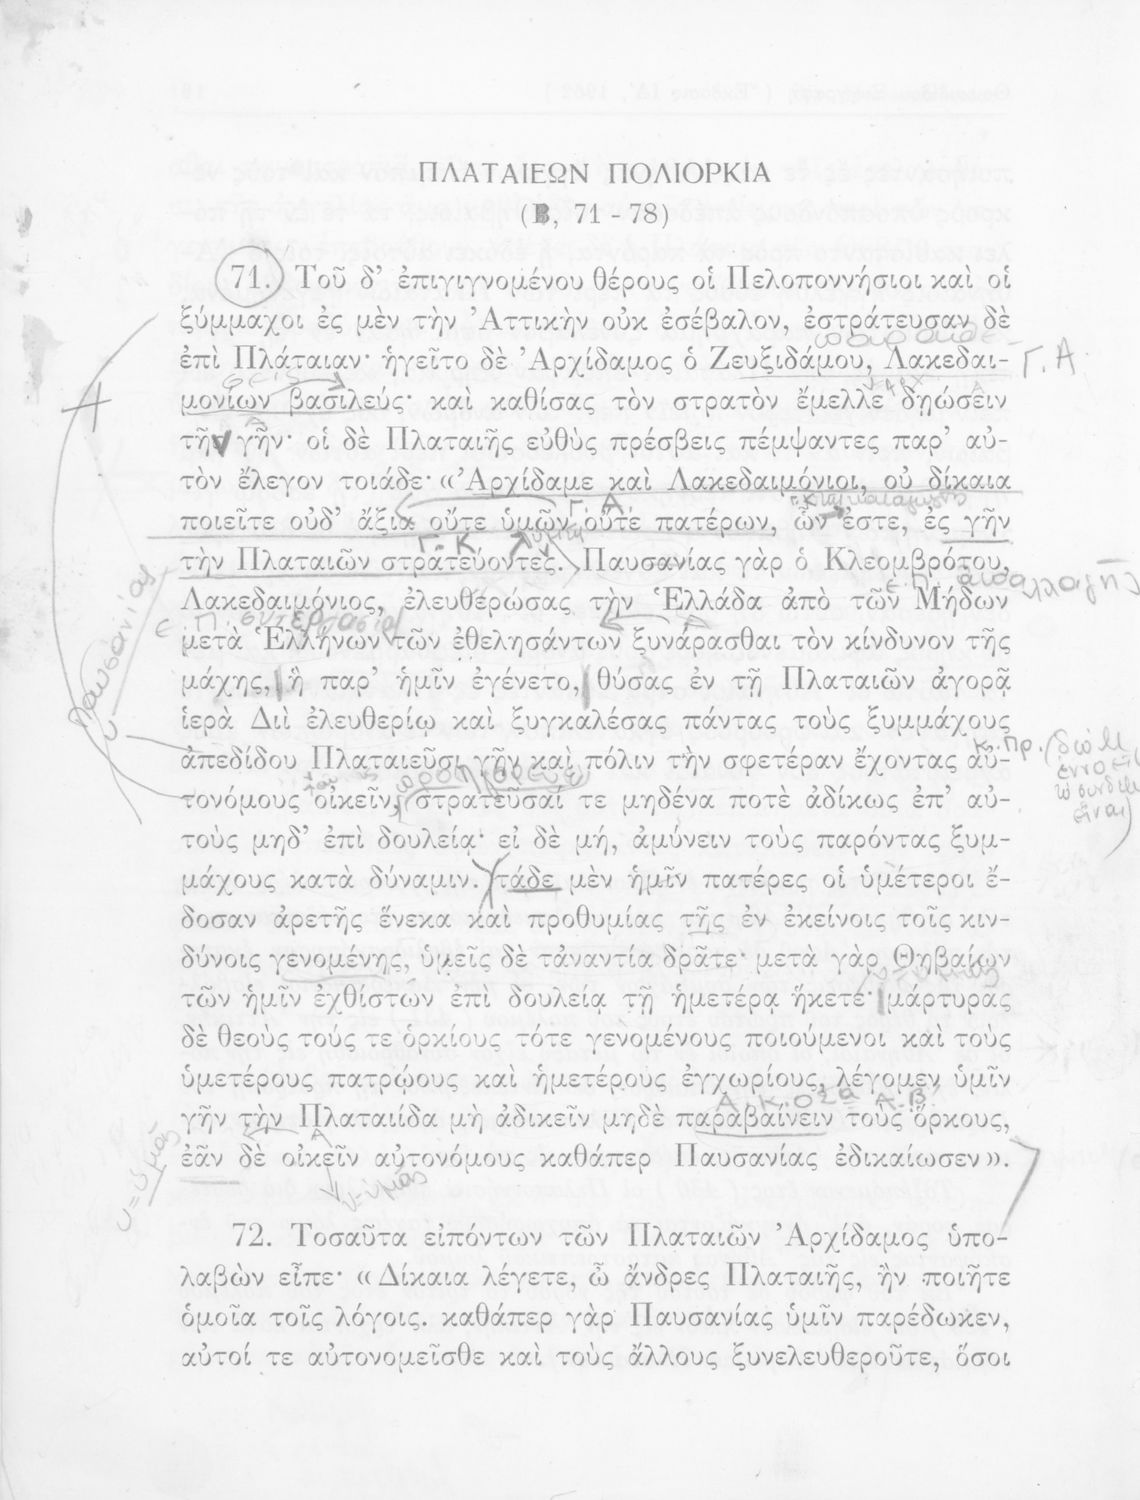 ΠΛΑΤΑΙΕΩΝ ΠΟΛΙΟΡΚΙΑ
(Β, 71 - 78)
71. Τοῦ δ’ ἐπιγιγνομένου θέρους οἱ Πελοποννήσιοι καὶ οἱ
ξύμμαχοι ἐς μὲν τὴν ’Αττικὴν οὐκ ἐσέβαλον, ἐστράτευσαν δὲ
ἐπὶ Πλάταιαν· ἡγεῖτο δὲ ’Αρχίδαμος ὁ Ζευξιδάμου, Λακεδαι-
Γ. Α
μονίων βασιλεύς· καὶ καθίσας τὸν στρατὸν ἔμελλε δῃώσειν
τὴν γῆν· οἱ δὲ Πλαταιῆς εὐθὺς πρέσβεις πέμψαντες παρ’ αὐ-
τὸν ἔλεγον τοιάδε· «’Αρχίδαμε καὶ Λακεδαιμόνιοι, οὐ δίκαια
Γ. Α.
ποιεῖτε οὐδ’ ἄξια οὔτε ὑμῶν οὔτε πατέρων, ὧν ἐστε, ἐς γῆν
Γ. Κ
τὴν Πλαταιῶν στρατεύοντες. Παυσανίας γὰρ ὁ Κλεομβρότου,
Λακεδαιμόνιος, ἐλευθερώσας τὴν ῾Ελλάδα ἀπὸ τῶν Μήδων
μετὰ ῾Ελλήνων τῶν ἐθελησάντων ξυνάρασθαι τὸν κίνδυνον τῆς
μάχης, ἣ παρ’ ἡμῖν ἐγένετο, θύσας ἐν τῇ Πλαταιῶν ἀγορᾷ
ἱερὰ Διὶ ἐλευθερίῳ καὶ ξυγκαλέσας πάντας τοὺς ξυμμάχους
ἀπεδίδου Πλαταιεῦσι γῆν καὶ πόλιν τὴν σφετέραν ἔχοντας αὐ-
τονόμους οἰκεῖν, στρατεῦσαί τε μηδένα ποτὲ ἀδίκως ἐπ’ αὐ-
τοὺς μηδ’ ἐπὶ δουλείᾳ· εἰ δὲ μή, ἀμύνειν τοὺς παρόντας ξυμ-
μάχους κατὰ δύναμιν. τάδε μὲν ἡμῖν πατέρες οἱ ὑμέτεροι ἔ-
δοσαν ἀρετῆς ἕνεκα καὶ προθυμίας τῆς ἐν ἐκείνοις τοῖς κιν-
δύνοις γενομένης, ὑμεῖς δὲ τἀναντία δρᾶτε· μετὰ γὰρ Θηβαίων
τῶν ἡμῖν ἐχθίστων ἐπὶ δουλείᾳ τῇ ἡμετέρᾳ ἥκετε· μάρτυρας
δὲ θεοὺς τούς τε ὁρκίους τότε γενομένους ποιούμενοι καὶ τοὺς
ὑμετέρους πατρῴους καὶ ἡμετέρους ἐγχωρίους, λέγομεν ὑμῖν
γῆν τὴν Πλαταιίδα μὴ ἀδικεῖν μηδὲ παραβαίνειν τοὺς ὅρκους,
ἐᾶν δὲ οἰκεῖν αὐτονόμους καθάπερ Παυσανίας ἐδικαίωσεν».
72. Τοσαῦτα εἰπόντων τῶν Πλαταιῶν ’Αρχίδαμος ὑπο-
λαβὼν εἶπε· «Δίκαια λέγετε, ὦ ἄνδρες Πλαταιῆς, ἢν ποιῆτε
ὁμοῖα τοῖς λόγοις. καθάπερ γὰρ Παυσανίας ὑμῖν παρέδωκεν,
αὐτοί τε αὐτονομεῖσθε καὶ τοὺς ἄλλους ξυνελευθεροῦτε, ὅσοι